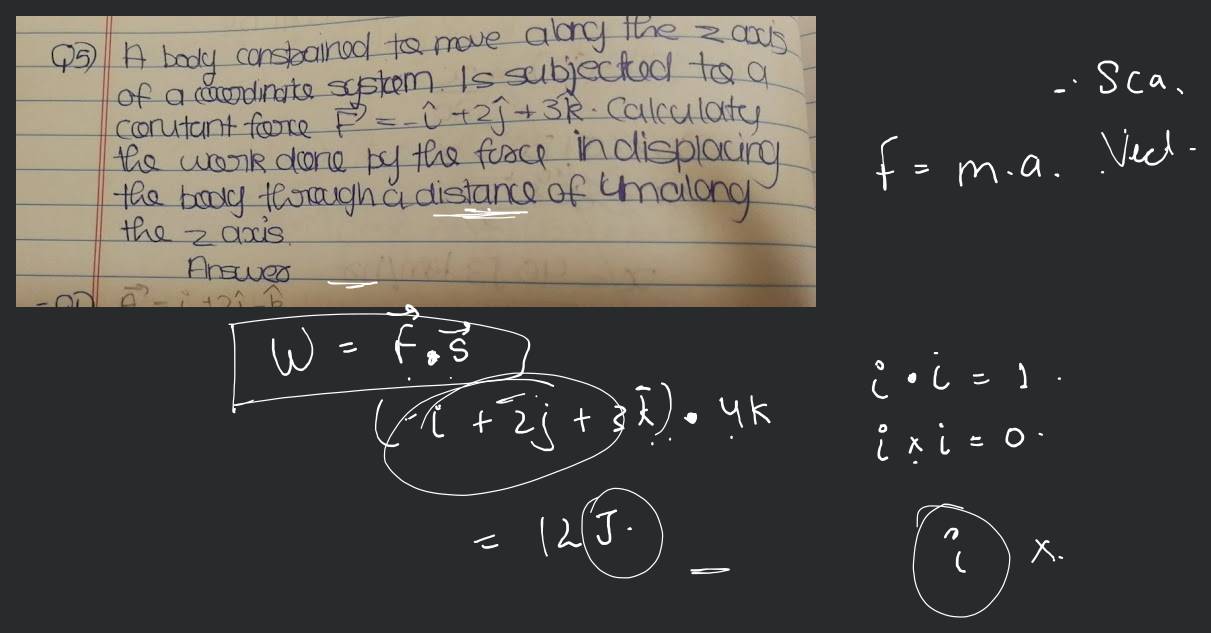 Q5) A body constained to move along the z axis
of a coordinate system. Is subjected to a
constant force F = -î + 2ĵ + 3k̂. Calculaty
the work done by the force in displacing
the body through a distance of 4m along
the z axis.
Answer
-: Sca.
F = m.a. Vect.
W = F.S
(-i + 2j + 3k) • 4k
= 12 J.
i • i = 1.
i x i = 0.
i x.